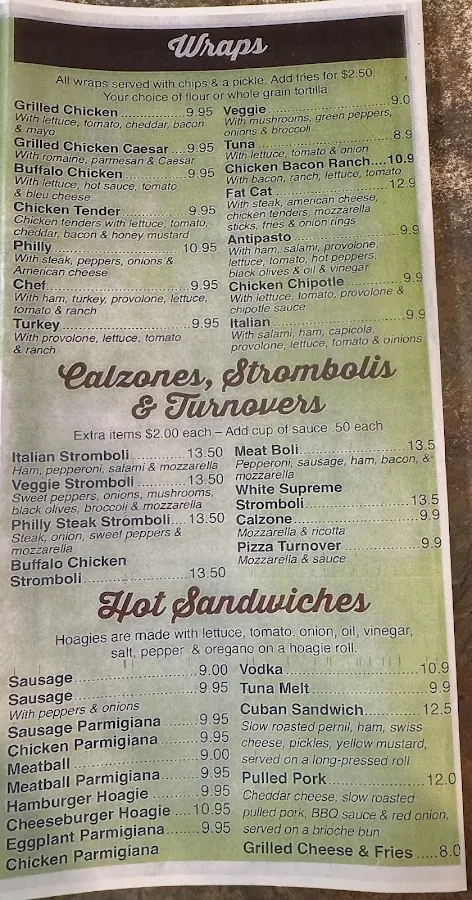 Wraps
All wraps served with chips & a pickle. Add fries for $2.50.
Your choice of flour or whole grain tortilla.
Grilled Chicken 9.95
With lettuce, tomato, cheddar, bacon
& mayo
Grilled Chicken Caesar 9.95
With romaine, parmesan & Caesar
Buffalo Chicken 9.95
With lettuce, hot sauce, tomato
& bleu cheese
Chicken Tender 9.95
Chicken tenders with lettuce, tomato,
cheddar, bacon & honey mustard
Philly 10.95
With steak, peppers, onions &
American cheese
Chef 9.95
With ham, turkey, provolone, lettuce,
tomato & ranch
Turkey 9.95
With provolone, lettuce, tomato
& ranch
Veggie 9.0
With mushrooms, green peppers,
onions & broccoli
Tuna 8.9
With lettuce, tomato & onion
Chicken Bacon Ranch 10.9
With bacon, ranch, lettuce, tomato
Fat Cat 12.9
With steak, american cheese,
chicken tenders, mozzarella
sticks, fries & onion rings
Antipasto 9.9
With ham, salami, provolone,
lettuce, tomato, hot peppers,
black olives & oil & vinegar
Chicken Chipotle 9.9
With lettuce, tomato, provolone &
chipotle sauce
Italian 9.9
With salami, ham, capicola,
provolone, lettuce, tomato & oinions
Calzones, Strombolis
& Turnovers
Extra items $2.00 each – Add cup of sauce .50 each
Italian Stromboli 13.50
Ham, pepperoni, salami & mozzarella
Veggie Stromboli 13.50
Sweet peppers, onions, mushrooms,
black olives, broccoli & mozzarella
Philly Steak Stromboli 13.50
Steak, onion, sweet peppers &
mozzarella
Buffalo Chicken
Stromboli 13.50
Meat Boli 13.5
Pepperoni, sausage, ham, bacon, &
mozzarella
White Supreme
Stromboli 13.5
Calzone 9.9
Mozzarella & ricotta
Pizza Turnover 9.9
Mozzarella & sauce
Hot Sandwiches
Hoagies are made with lettuce, tomato, onion, oil, vinegar,
salt, pepper & oregano on a hoagie roll.
Sausage 9.00
Sausage 9.95
With peppers & onions
Sausage Parmigiana 9.95
Chicken Parmigiana 9.95
Meatball 9.00
Meatball Parmigiana 9.95
Hamburger Hoagie 9.95
Cheeseburger Hoagie 10.95
Eggplant Parmigiana 9.95
Chicken Parmigiana
Vodka 10.9
Tuna Melt 9.9
Cuban Sandwich 12.5
Slow roasted pernil, ham, swiss
cheese, pickles, yellow mustard,
served on a long-pressed roll
Pulled Pork 12.0
Cheddar cheese, slow roasted
pulled pork, BBQ sauce & red onion,
served on a brioche bun
Grilled Cheese & Fries 8.0